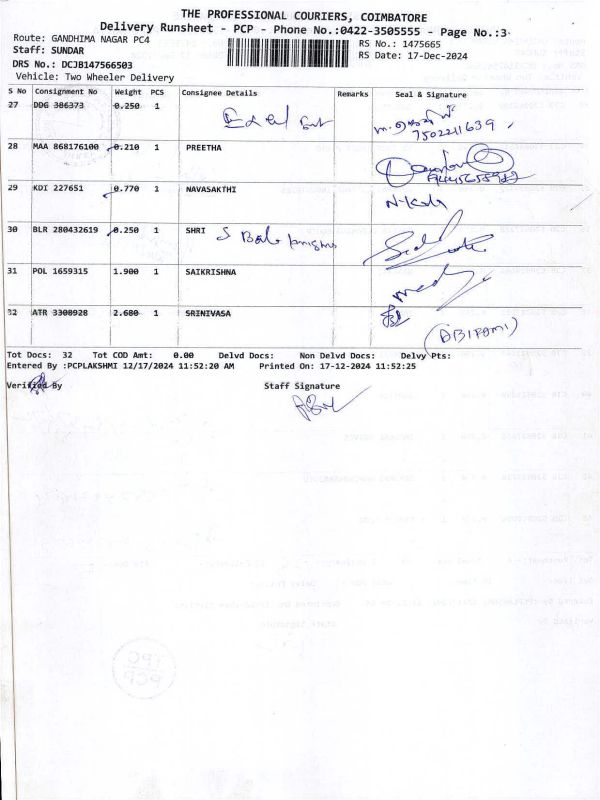 THE PROFESSIONAL COURIERS, COIMBATORE
Delivery Runsheet - PCP - Phone No.:0422-3505555 - Page No.:3
Route: GANDHIMA NAGAR PC4
RS No.: 1475665
Staff: SUNDAR
RS Date: 17-Dec-2024
DRS No.: DCJB147566503
Vehicle: Two Wheeler Delivery
S No Consignment No Weight PCS Consignee Details Remarks Seal & Signature
27 DDG 386373 0.250 1
7502211639
28 MAA 868176100 0.210 1 PREETHA
29 KDI 227651 0.770 1 NAVASAKTHI
30 BLR 280432619 0.250 1 SHRI
31 POL 1659315 1.900 1 SAIKRISHNA
32 ATR 3300928 2.680 1 SRINIVASA
(ABIRAMI)
Tot Docs: 32 Tot COD Amt: 0.00 Delvd Docs: Non Delvd Docs: Delvy Pts:
Entered By :PCPLAKSHMI 12/17/2024 11:52:20 AM Printed On: 17-12-2024 11:52:25
Verified By Staff Signature